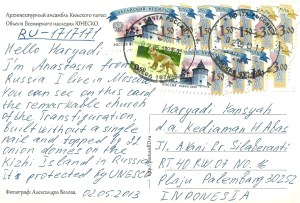 Архитектурный ансамбль Кижского погоста
Объект Всемирного наследия ЮНЕСКО.
RU-1717171
Hello Haryadi.
I'm Anastasia from
Russia I live in Moscow
You can see on this card
the remarkable church
of the Transfiguration,
built without a single
nail and topped by 22
onion domes on the
Kizhi Island in Russia,
it's protected by UNESCO
02.05.2013
Haryadi Yansyah
d.a. Kediaman H Abas
Jl. Akani Dr. Silaberanti
RT 40 RW 01 NO.
Plaju Palembang 30252
INDONESIA